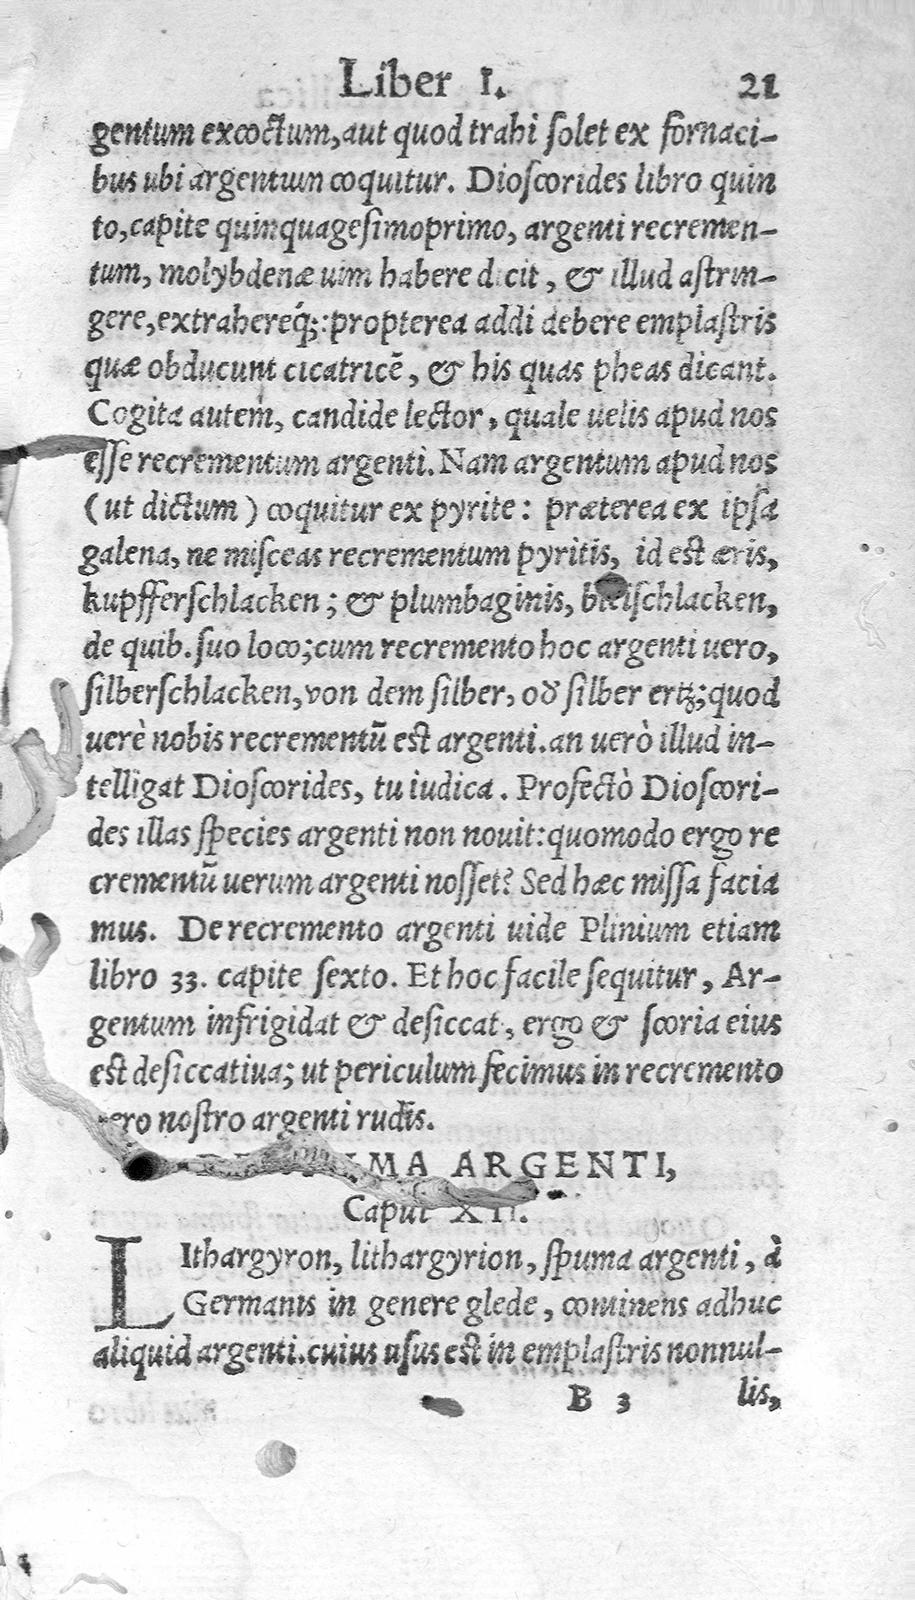 Liber I. 21
gentum excoctum, aut quod trahi ſolet ex fornaci-
bus ubi argentum coquitur. Dioſcorides libro quin
to, capite quinquageſimoprimo, argenti recremen-
tum, molybdenæ uim habere dicit, & illud aſtrin-
gere, extrahereq́;: propterea addi debere emplaſtris
quæ obducunt cicatricē, & his quas pheas dicant.
Cogita autem, candide lector, quale uelis apud nos
eſſe recrementum argenti. Nam argentum apud nos
(ut dictum) coquitur ex pyrite: præterea ex ipſa
galena, ne miſceas recrementum pyritis, id est æris,
kupfferſchlacken; & plumbaginis, bleiſchlacken,
de quib. ſuo loco; cum recremento hoc argenti uero,
ſilberſchlacken, von dem ſilber, oď ſilber ertz; quod
uerè nobis recrementũ est argenti. an uerò illud in-
telligat Dioſcorides, tu iudica. Profectò Dioſcori-
des illas ſpecies argenti non nouit: quomodo ergo re
crementũ uerum argenti noſſet? Sed hæc miſſa facia
mus. De recremento argenti uide Plinium etiam
libro 33. capite ſexto. Et hoc facile ſequitur, Ar-
gentum infrigidat & deſiccat, ergo & ſcoria eius
est deſiccatiua; ut periculum fecimus in recremento
uero noſtro argenti rudis.
DE SPUMA ARGENTI,
Caput XII.
LIthargyron, lithargyrion, ſpuma argenti, à
Germanis in genere glede, continens adhuc
aliquid argenti. cuius uſus est in emplaſtris nonnul-
B 3 lis,